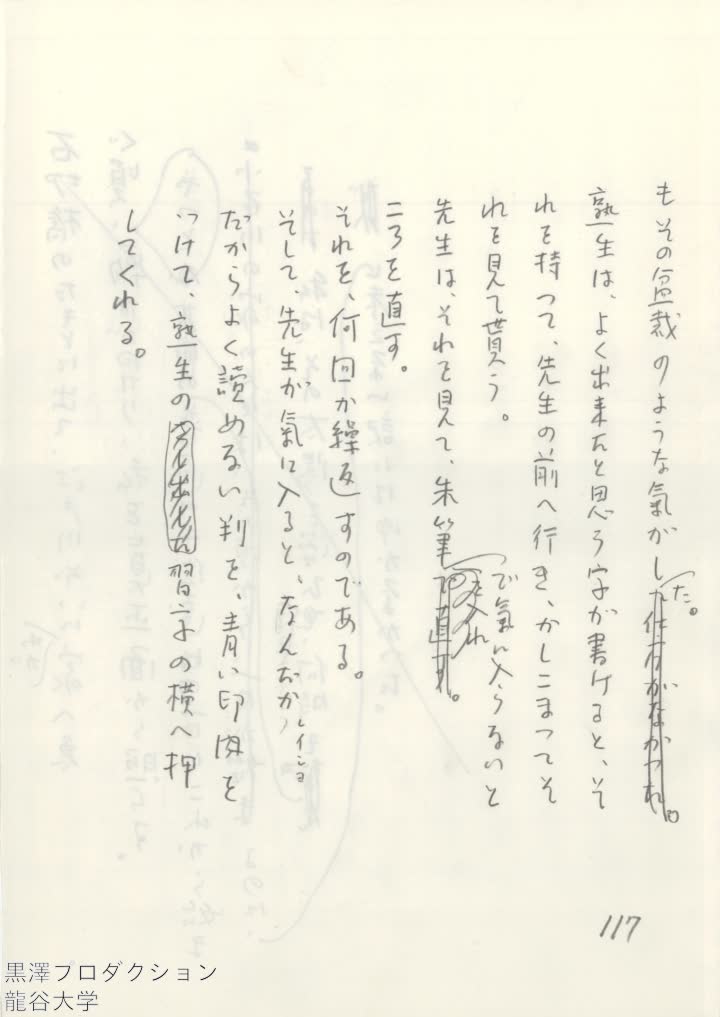 もその盆裁のような氣がした。仕方がなかつた。
熟生は、よく出来たと思う字が書けると、そ
れを持つて、先生の前へ行き、かしこまつてそ
れを見て貰う。
先生は、それを見て、朱筆で氣に入らないと
を入れ
で直す。
ころを直す。
それを、何回か繰返すのである。
そして、先生が氣に入ると、なんだか
レイショ
だからよく讀めない判を、青い印肉を
つけて、熟生の習字の横へ押
してくれる。
117
黒澤プロダクション
龍谷大学